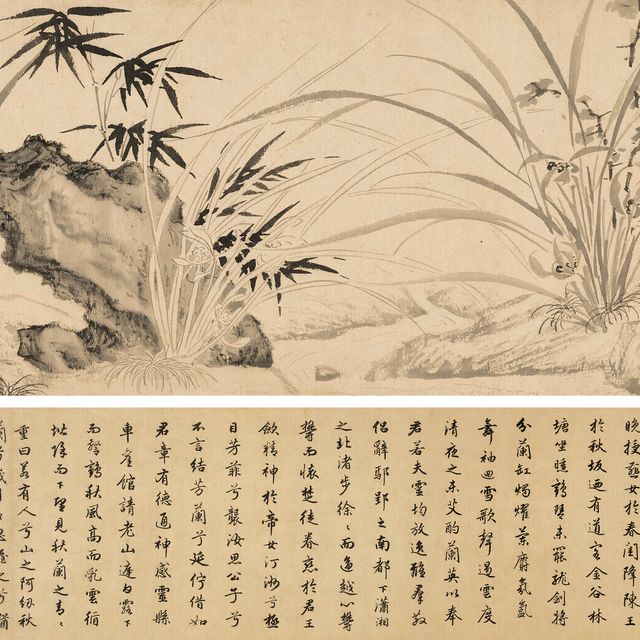 於春閨降陳王
於秋坂迺有道客金谷林
塘坐曛鶴琴未罷龍劍將
分蘭缸燭耀蘭麝氛氳
舞袖迴雪歌聲遏雲度
清夜之未艾酌蘭英以奉
君若夫靈均放逐離羣散
侶辭鄢郢之南都下瀟湘
之北渚步徐徐而適越心鬱
鬱而懷楚徒眷戀於君王
斂精神於帝女汀洲兮極
目芳菲兮襲汝思公子兮
不言結芳蘭兮延佇借如
君章有德通神感靈縣
車舊館請老山庭白露下
而警鶴秋風高而亂雲循
堦除而下望見秋蘭之青青
重曰若有人兮山之阿紉秋